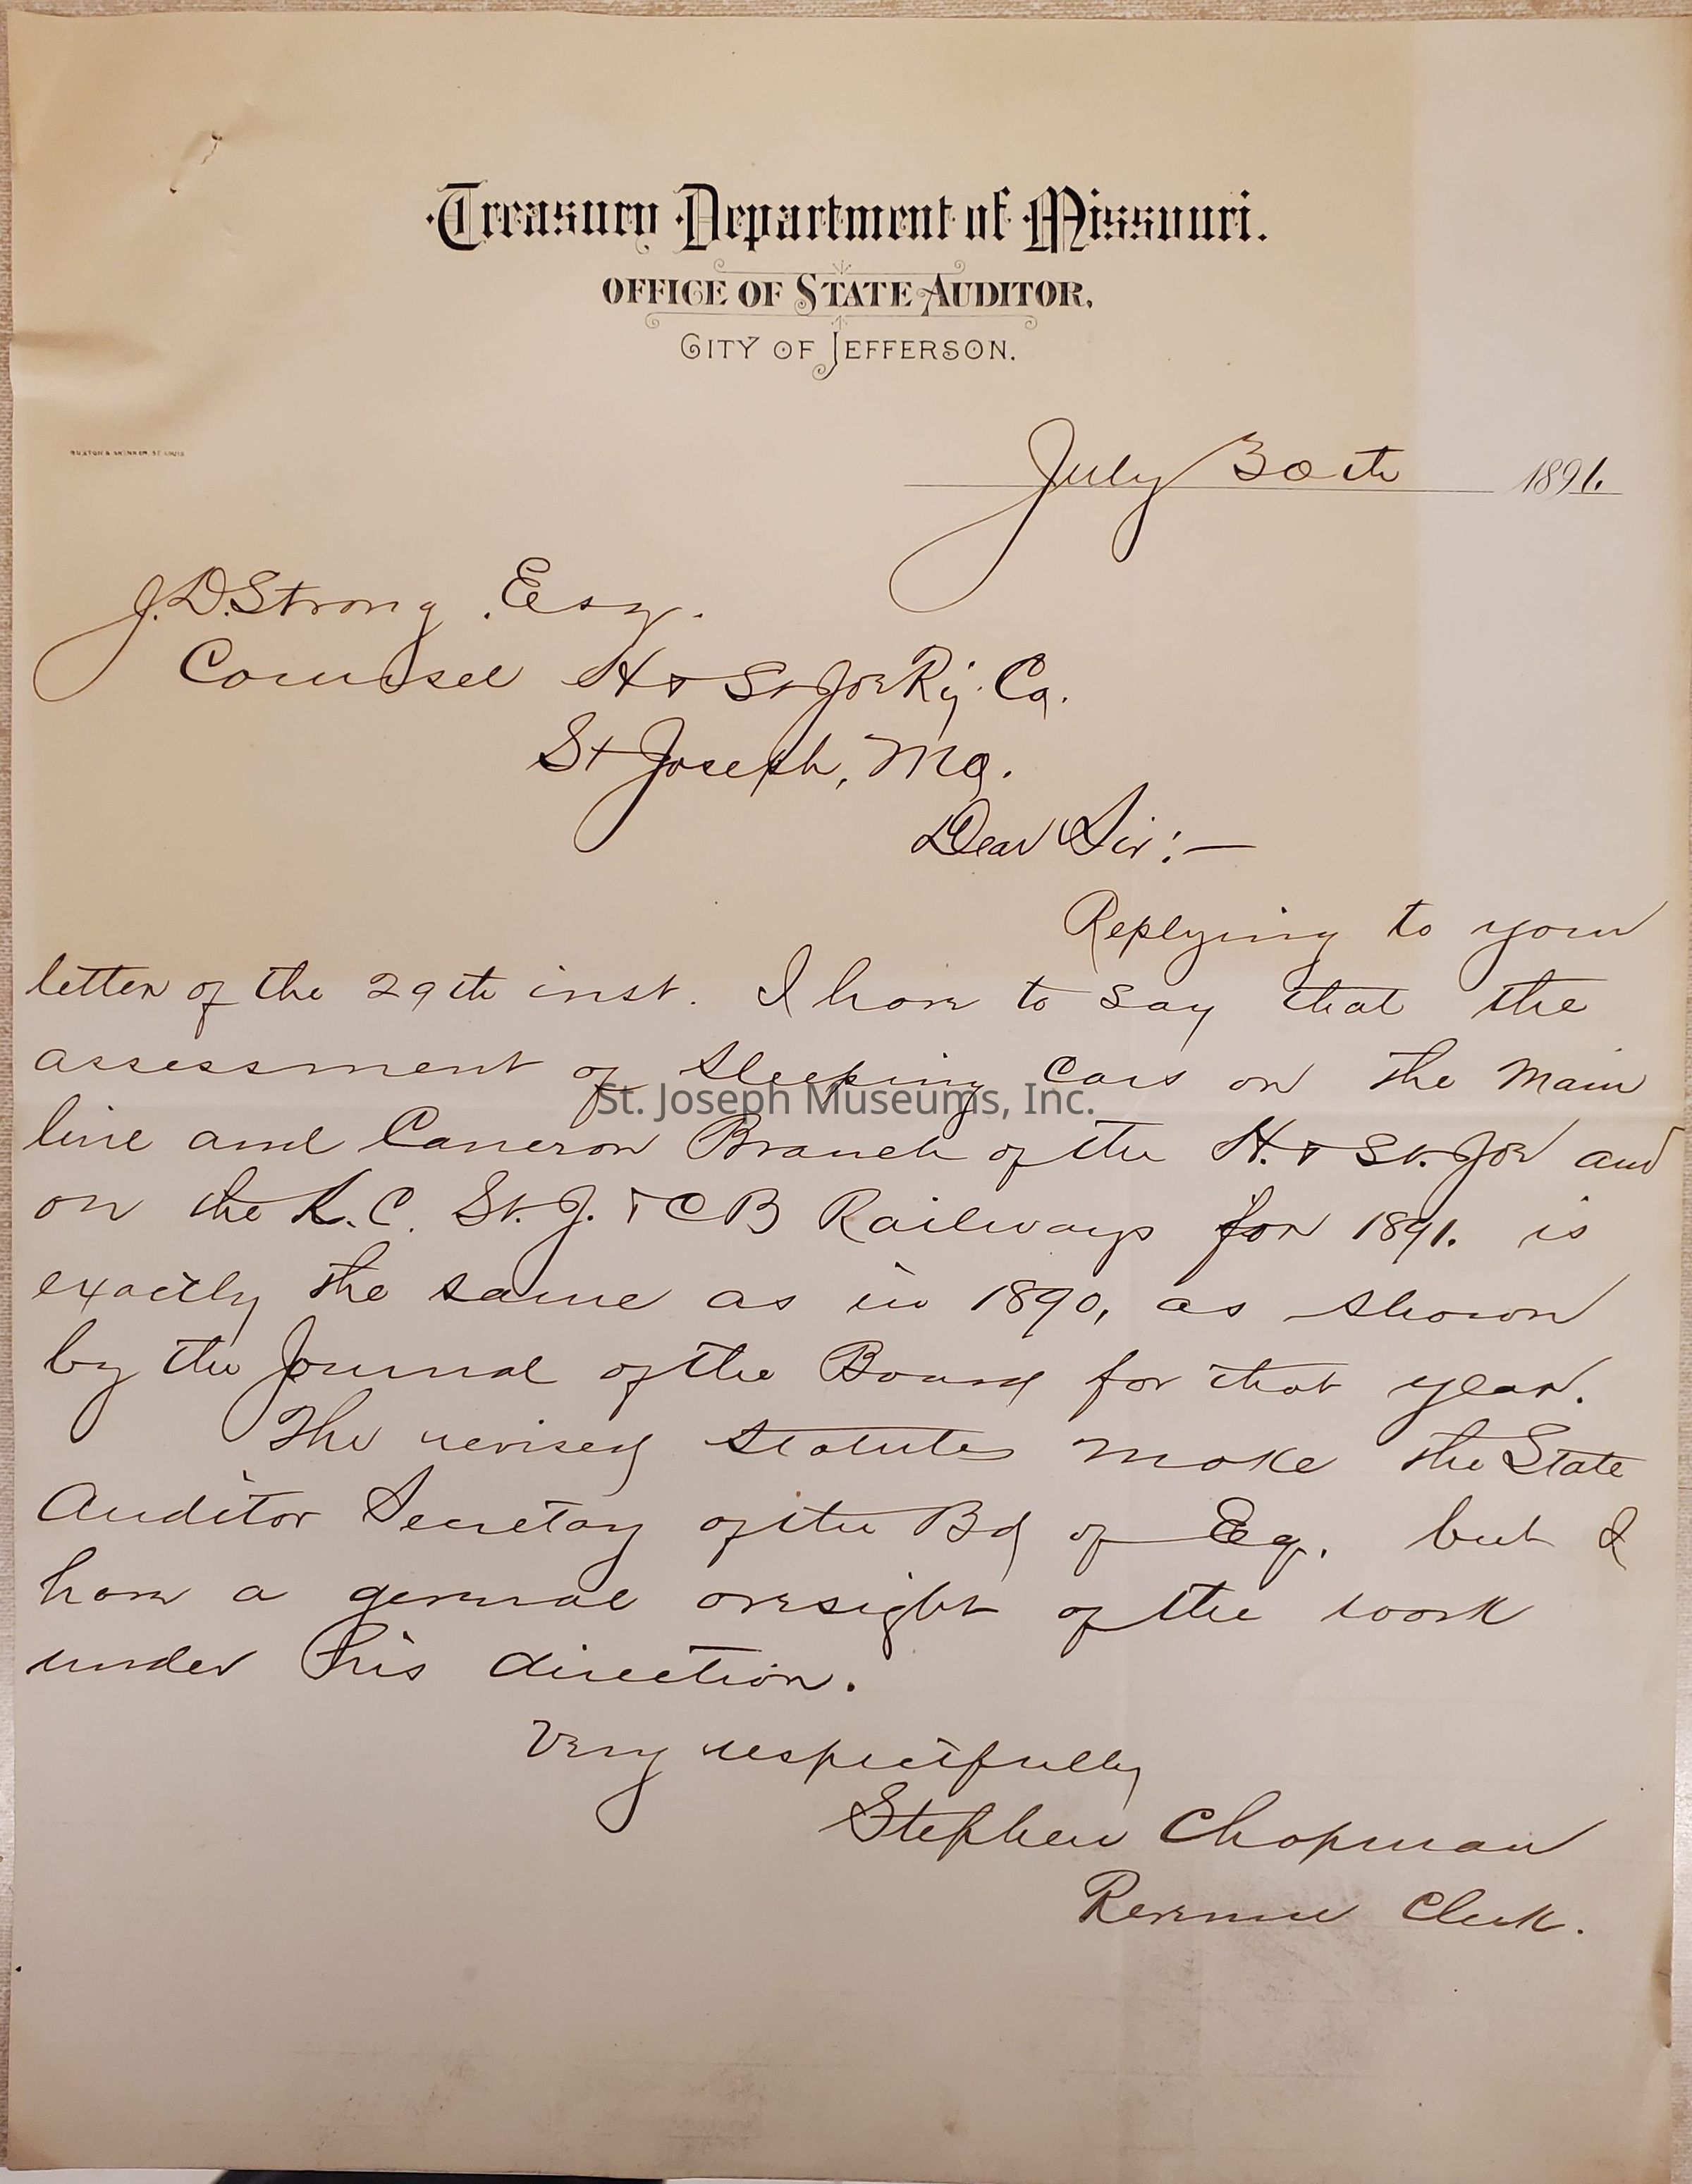 Treasury Department of Missouri.
OFFICE OF STATE AUDITOR,
CITY OF JEFFERSON.
BUXTON & SKINNER, ST. LOUIS
July 30th 1891.
J. D. Strong, Esq.
Counsel H & St Joe Ry. Co.
St Joseph, Mo.
Dear Sir:—
Replying to your
letter of the 29th inst. I have to say that the
assessment of Sleeping Cars on the Main
St. Joseph Museums, Inc.
line and Cameron Branch of the H. & St. Joe and
on the K. C. St. J. & CB Railways for 1891. is
exactly the same as in 1890, as shown
by the Journal of the Board for that year.
The revised statutes make the State
Auditor Secretary of the Bd of Eq. but I
have a general oversight of the work
under his direction.
Very respectfully
Stephen Chapman
Revenue Clerk.